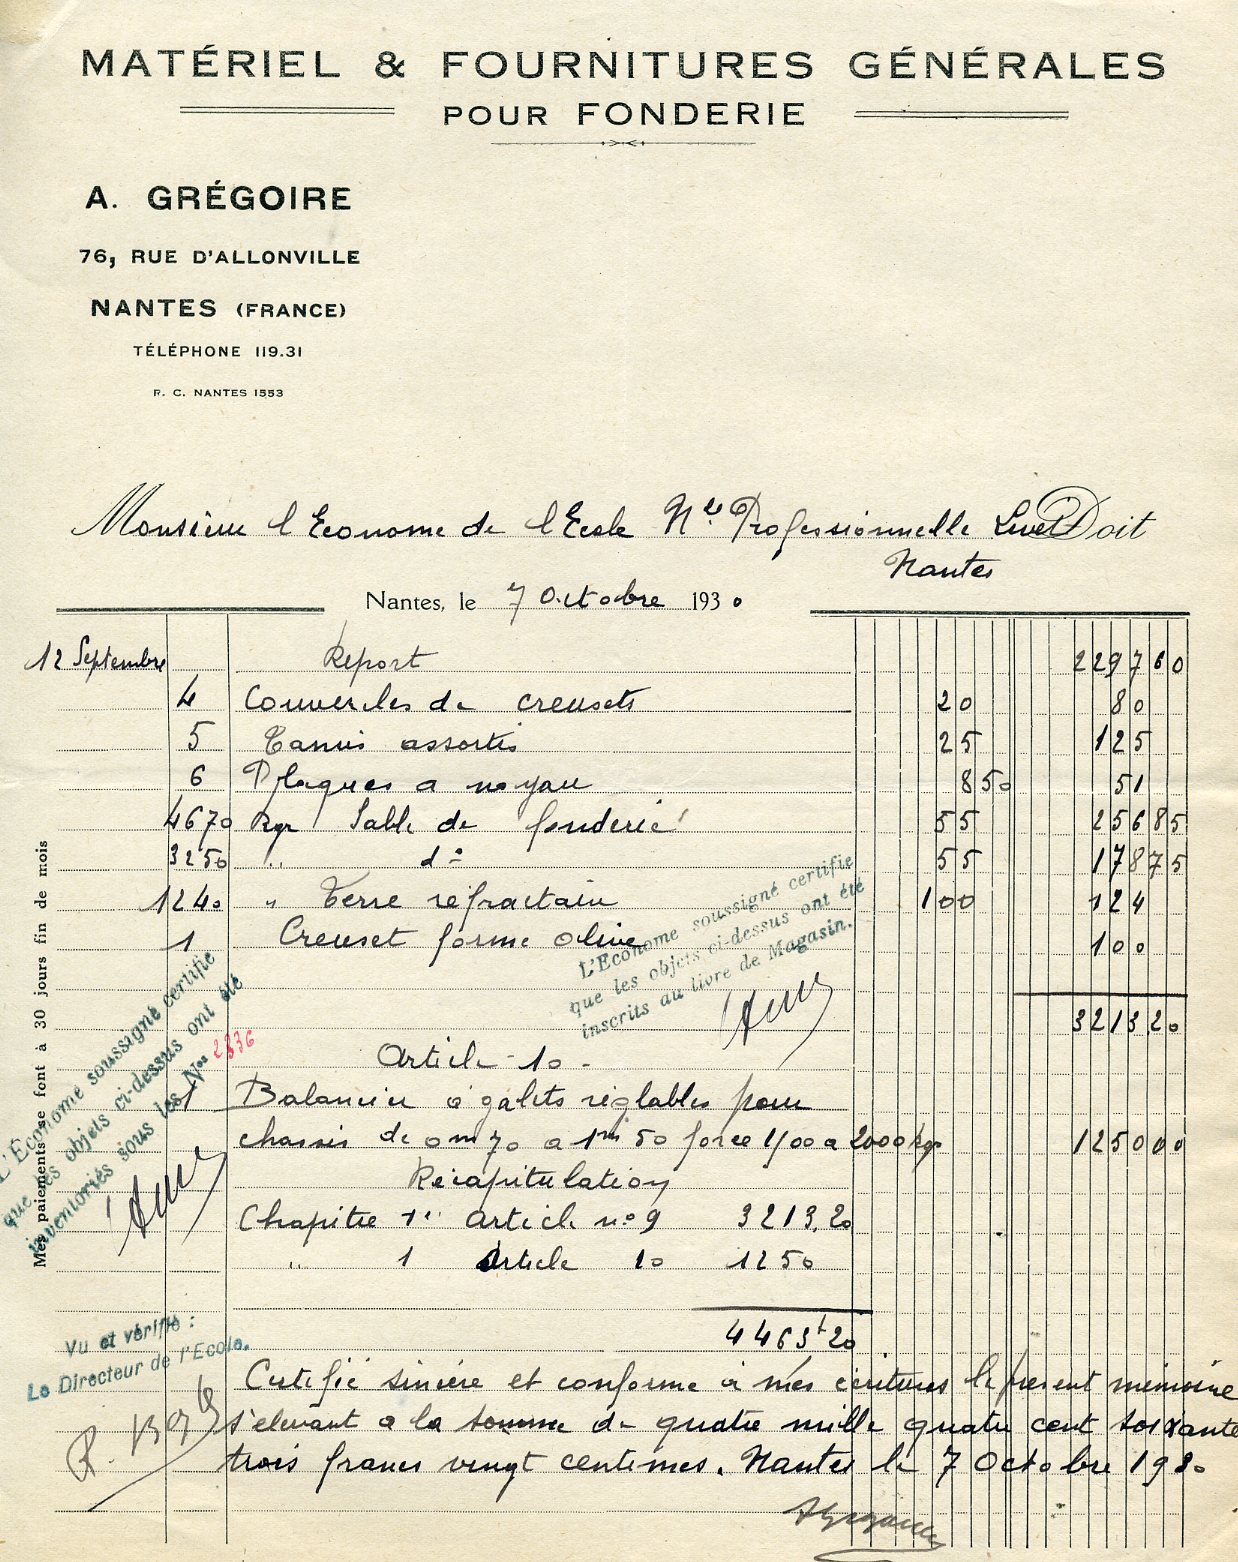 MATÉRIEL & FOURNITURES GÉNÉRALES
POUR FONDERIE
A. GRÉGOIRE
76, RUE D'ALLONVILLE
NANTES (FRANCE)
TÉLÉPHONE 119.31
R. C. NANTES 1553
Monsieur l'Econome de l'Ecole Nle Professionnelle Livet Doit
Nantes
Nantes, le 7 Octobre 1930
12 Septembre Report 2297 60
4 Couvercles de creusets 20 80
5 Tamis assortis 25 125
6 Plaques a noyau 8 50 51
4670 Kgr Sable de fonderie 55 256 85
3250 " d° 55 178 75
1240 " Terre refractaire 100 124
1 Creuset forme olive 100
3213 20
L'Econome soussigné certifie
que les objets ci-dessus ont été
inscrits au livre de Magasin.
Article 10.
1 Balancier a galets réglables pour
chassis de 0m70 a 1m50 force 1/00 a 2000 kgr 1250 00
Récapitulation
Chapitre 1er article n°9 3213,20
" 1 Article 10 1250
4463f20
Certifié sincère et conforme à mes écritures le présent mémoire
s'élevant a la somme de quatre mille quatre cent soixante
trois francs vingt centimes. Nantes le 7 Octobre 1930
AGrégoire
L'Econome soussigné certifie
que les objets ci-dessus ont été
inventoriés sous les Nos 2336
Mes paiements se font à 30 jours fin de mois
Vu et vérifié :
Le Directeur de l'Ecole.